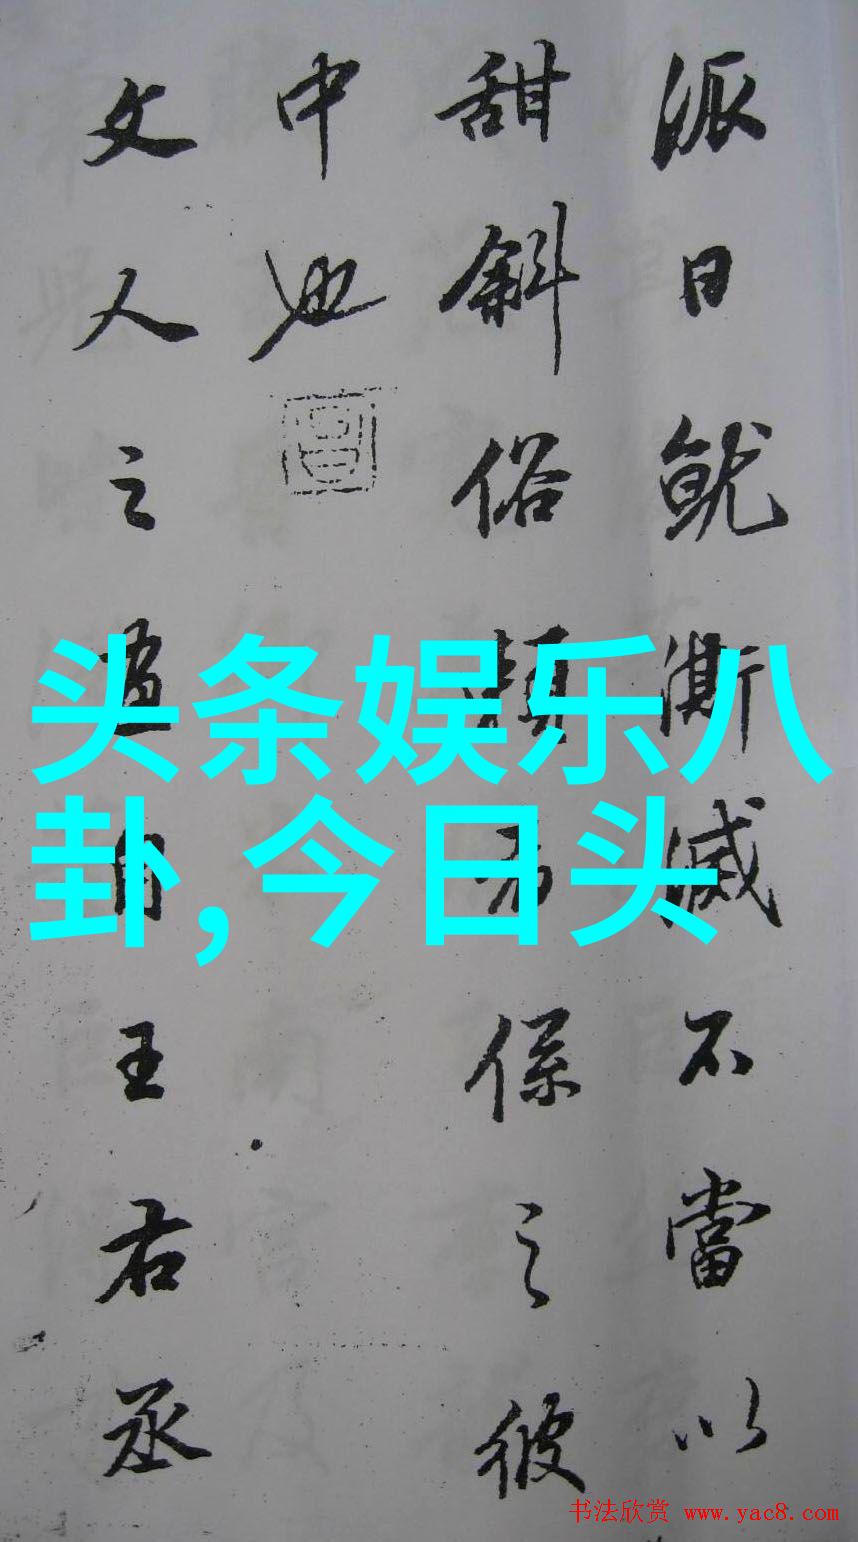 派日就澌滅不當以
甜斜俗賴者係之彼
中也
文人之畫自王右丞
头条娱乐八
卦,今日头
书法欣赏 www.yac8.com